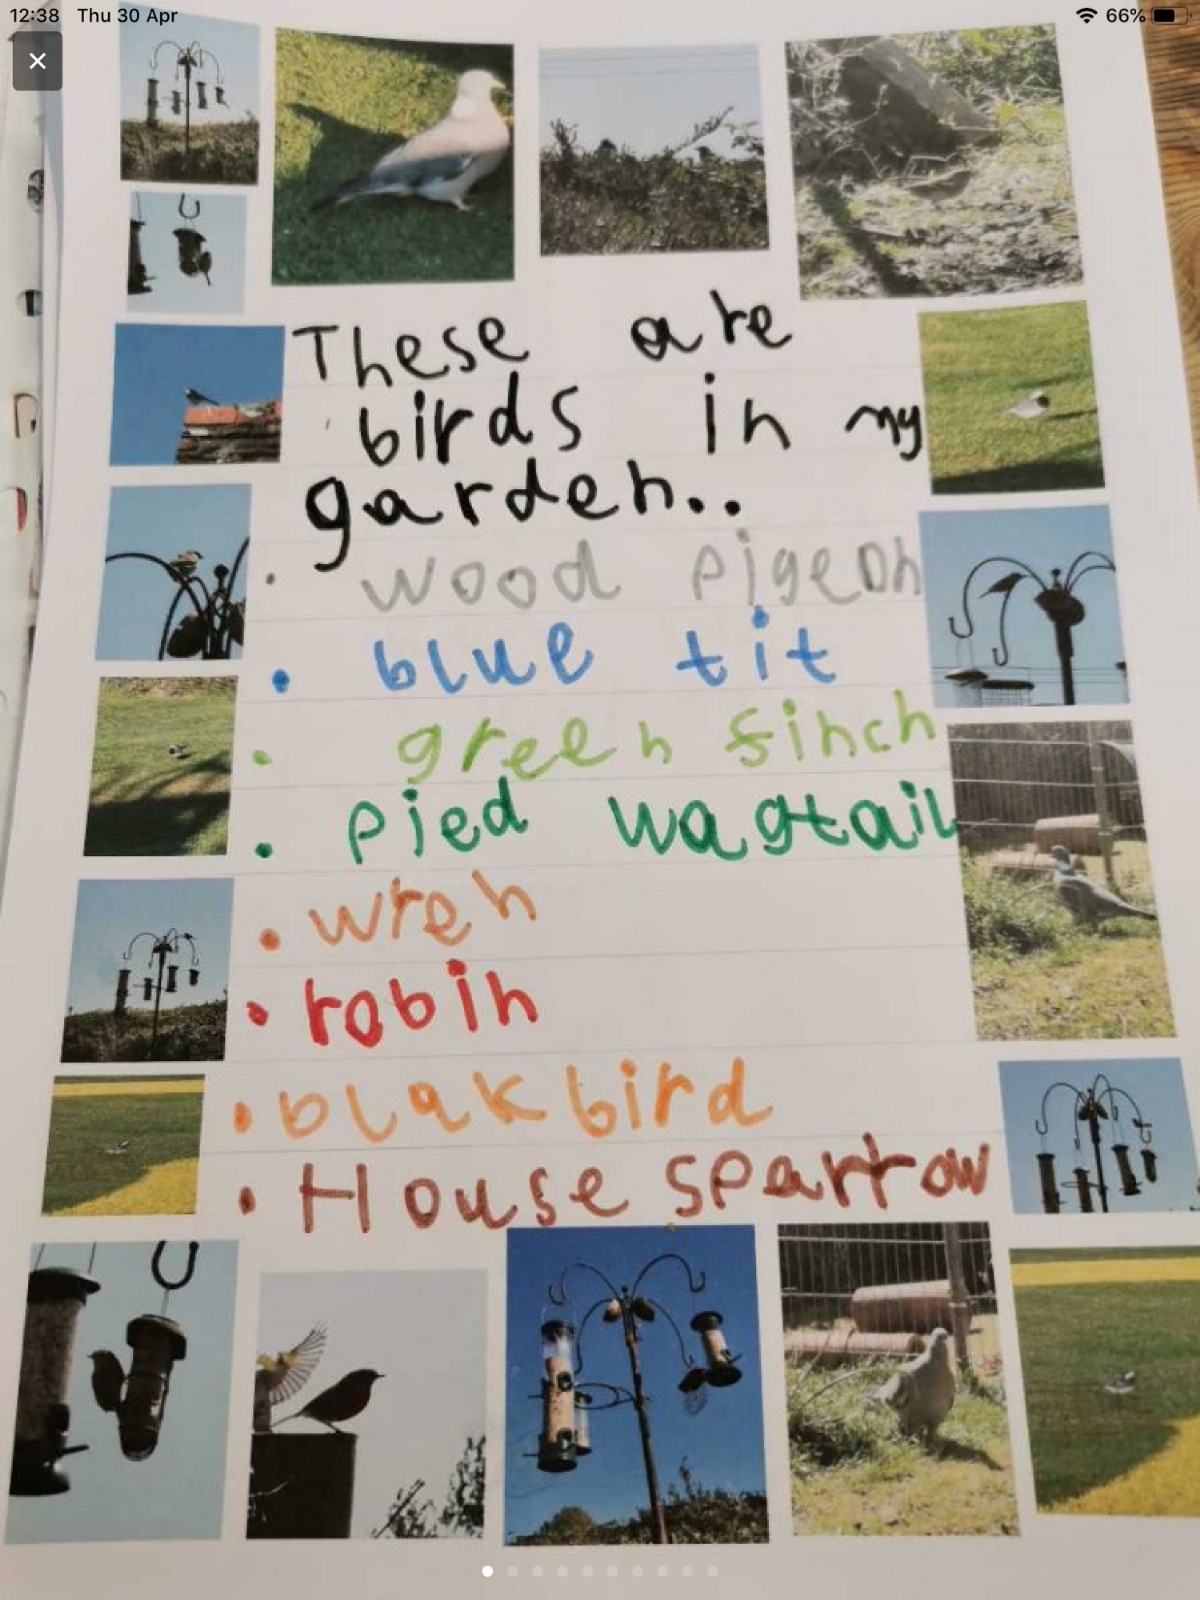 12:38 Thu 30 Apr 66%
These are
birds in my
garden..
• wood pigeon
• blue tit
• green finch
• pied wagtail
• wren
• robin
• blakbird
• House sparrow